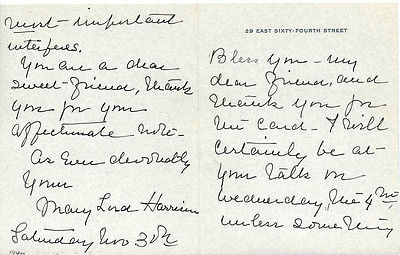 29 EAST SIXTY-FOURTH STREET
Bless you - my
dear friend, and
thank you for
the card - I will
certainly be at
your talks on
Wednesday, the 4th
unless something
most important
interferes.
You are a dear
sweet friend, thank
you for your
affectionate note -
As Ever devotedly
Yours
Mary Lord Harrison
Saturday Nov 30th
1940